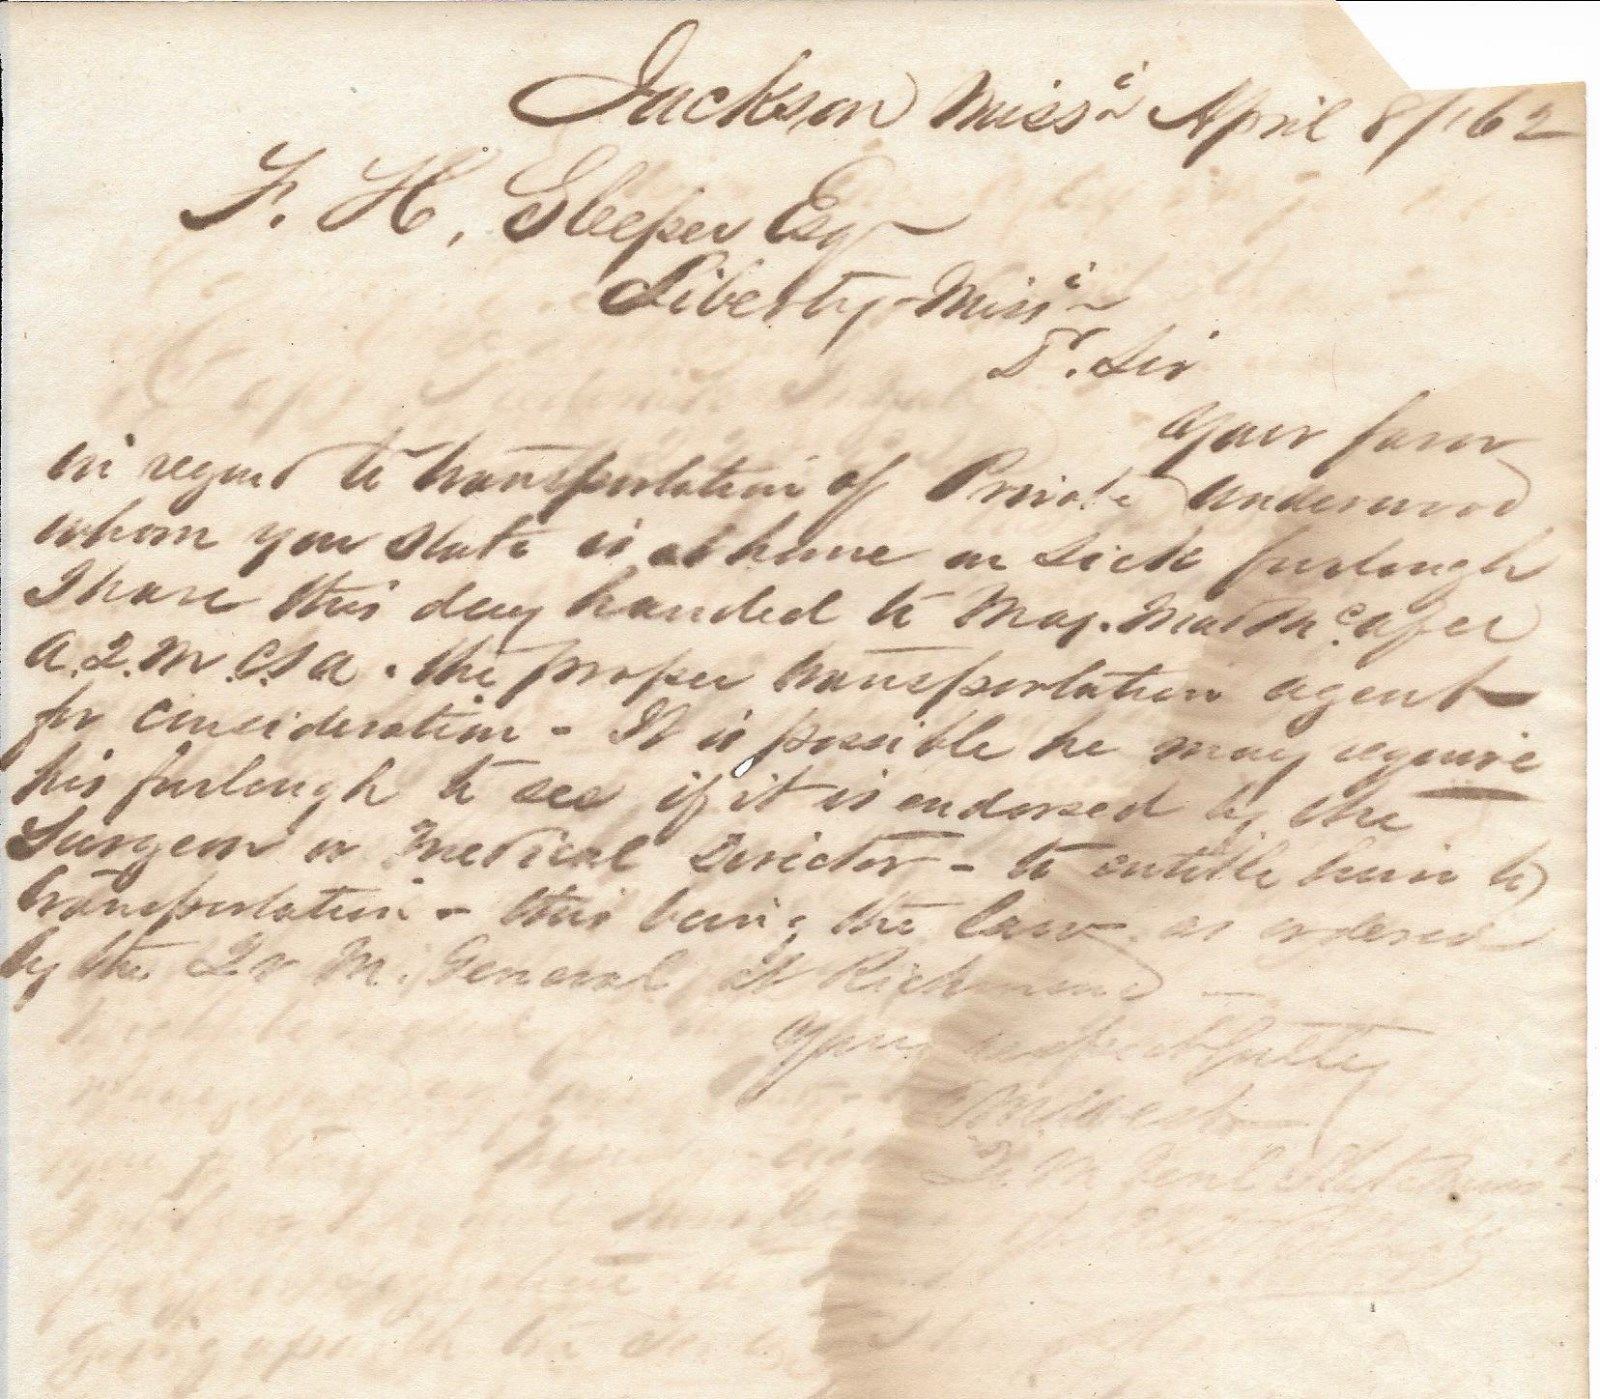 Jackson Missi April 8/162
F. H. Sleeper Esq
Liberty Missi
Dr. Sir
Your favor
in regard to transportation of Private Underwood
whom you state is at home on sick furlough
I have this day handed to Maj. McAfee
A.Q.M C.S.A. the proper transportation agent
for consideration - It is possible he may require
his furlough to see if it is endorsed by the
Surgeon or Medical Director - to entitle him to
transportation - this being the law as ordered
by the Qr M. General at Richmond -
Yours respectfully
Qr M Genl State Missi